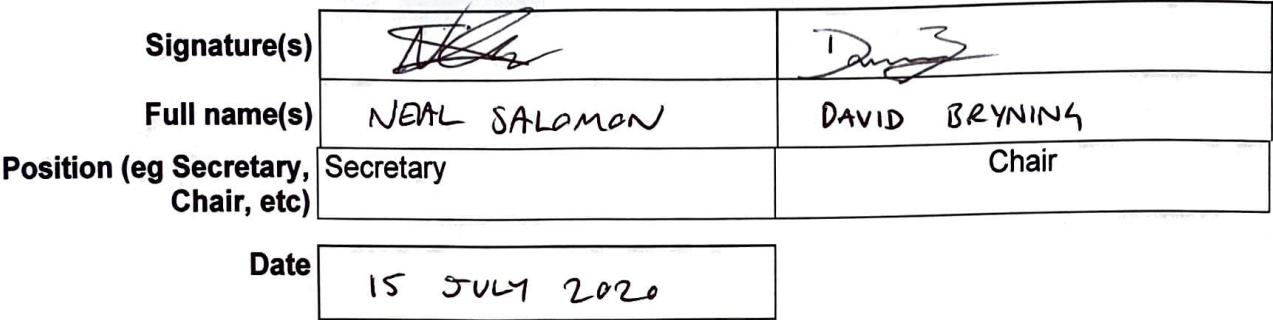 Signature(s)
Full name(s) NEAL SALOMON DAVID BRYNING
Position (eg Secretary, Secretary Chair
Chair, etc)
Date 15 JULY 2020